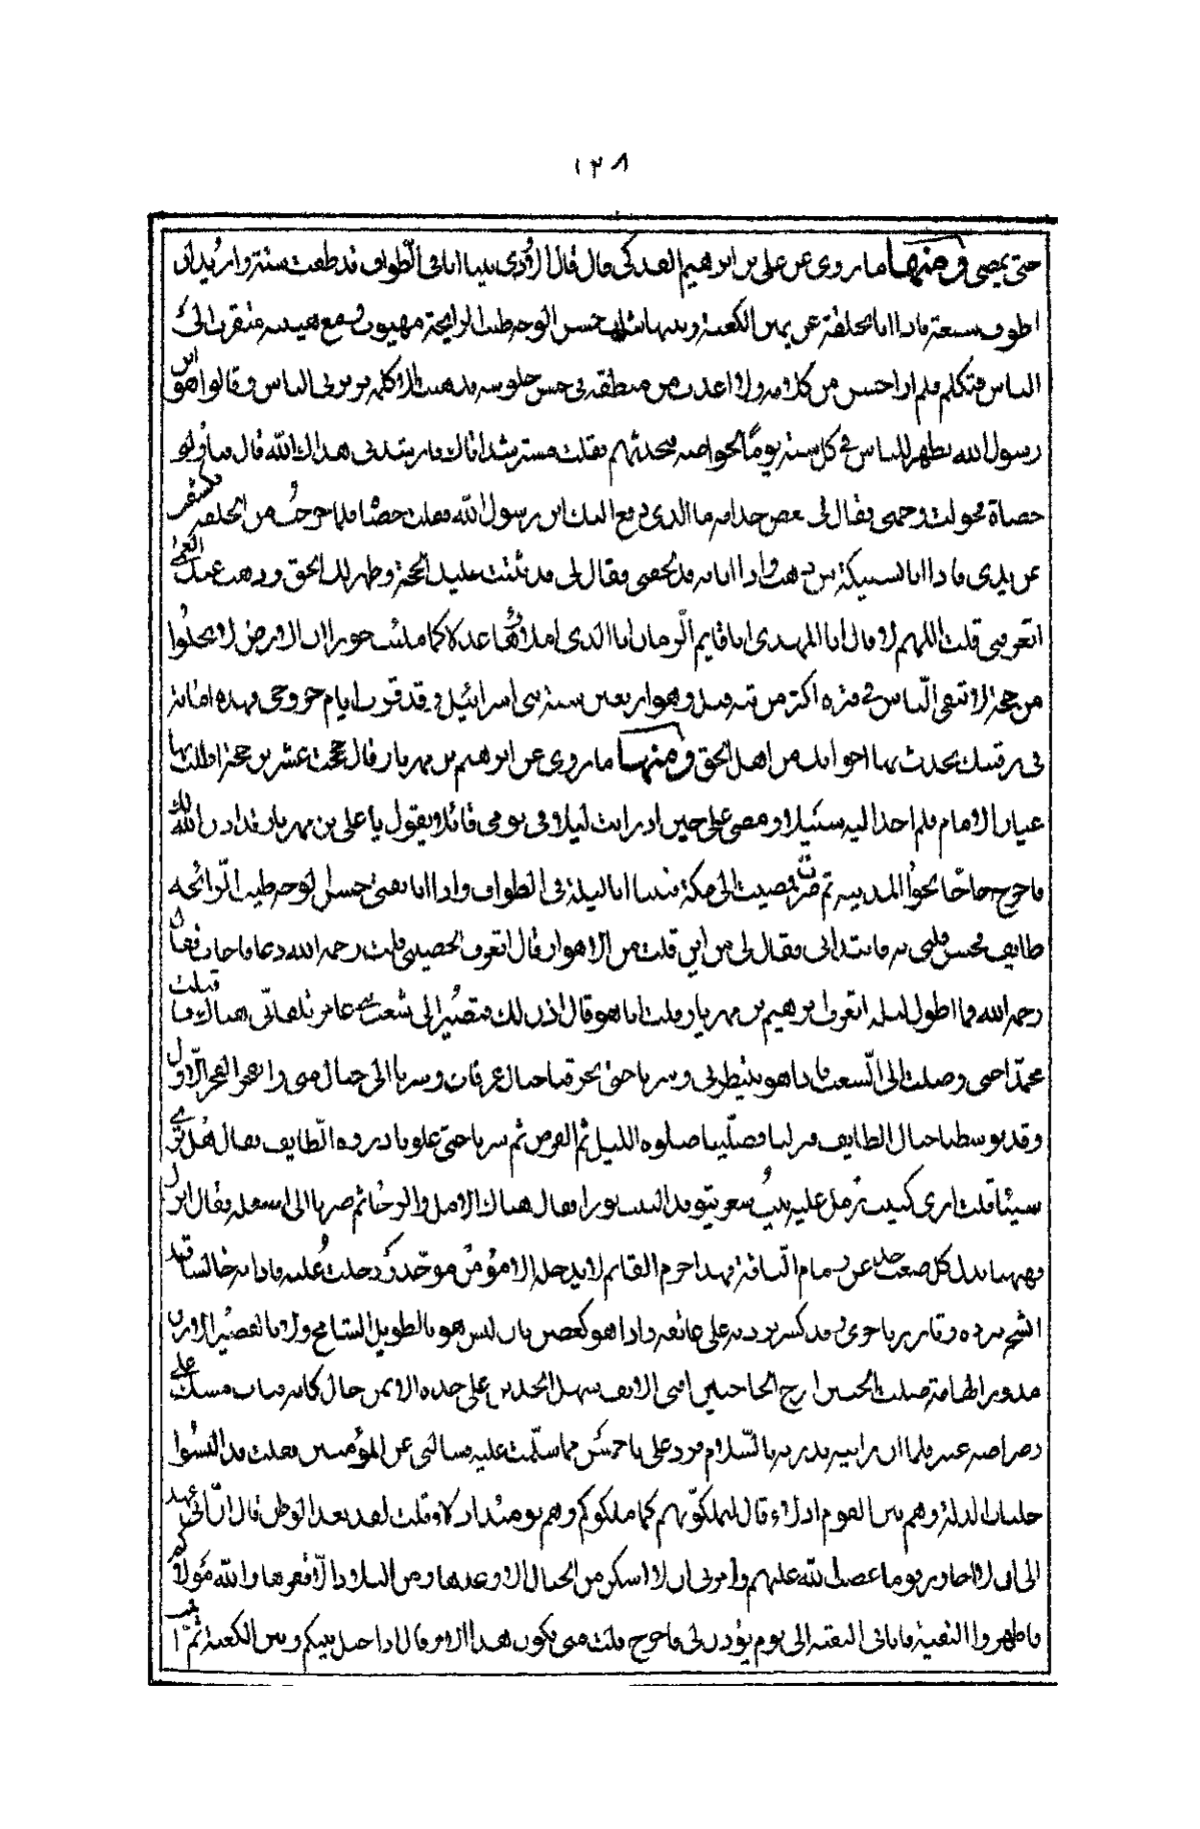 ١٢٨
حتى يمضي ومنها ما روي عن علي بن ابرهيم الفدكي قال قال الاودي بينا انا في الطواف قد طفت ستة واريد ان
اطوف سبعة فاذا انا بحلقة عن يمين الكعبة وشاب حسن الوجه طيب الرايحة مهيوب مع هيبته متقرب الى
الناس فتكلم فلم ار احسن من كلامه ولا اعذب من منطقه في حسن جلوسه فذهبت لاكلمه فزبرني الناس وقالوا هو ابن
رسول الله يظهر للناس في كل سنة يوما لخواصه فيحدثهم فقلت مسترشدا اتاك فارشدني هداك الله قال فناولني
حصاة فحولت وجهي فقال لي بعض خدامه ما الذي دفع اليك ابن رسول الله فقلت حصاة فلما خرجت من الحلقة فكشفت
عن يدي فاذا انا بسبيكة من ذهب واذا انا به قد لحقني فقال لي قد ثبتت عليك الحجة وظهر لك الحق وذهب عنك العمى
اتعرفني قلت اللهم لا قال انا المهدي انا قايم الزمان انا الذي املاؤها عدلا كما ملئت جورا ان الارض لا تخلوا
من حجة لا تبقى الناس في فترة اكثر من تيه وهو اربعين سنة بني اسرائيل وقد قرب ايام خروجي فهذه امانة
في رقبتك تحدث بها اخوانك من اهل الحق ومنها ما روي عن ابرهيم بن مهزيار قال حججت عشرين حجة اطلب بها
عيان الامام فلم اجد اليه سبيلا ومضى علي حين اذ رايت ليلا في نومي قائلا يقول يا علي بن مهزيار قد اذن الله لك
فاخرج حاجا نحو المدينة ثم مضيت الى مكة فبينا انا ليلة في الطواف واذا انا بفتى حسن الوجه طيب الرائحه
طايف فحس قلبي به فابتداني فقال لي من اين قلت من الاهواز قال اتعرف الخصيبي قلت رحمه الله دعا فاجاب فقال
رحمه الله فما اطول ليله اتعرف ابرهيم بن مهزيار قلت انا هو قال اذن لك فتصير الى شعب بني عامر تلقاني هناك فاقبلت
مجدا حتى وصلت الى الشعب فاذا هو ينتظرني وسرنا حتى تخرقنا جبال عرفات وسرنا الى جبال منى وانفجر الفجر الاول
وقد توسطنا جبال الطايف فنزلنا وصلينا صلوه الليل ثم الفرض ثم سرنا حتى علونا ذروه الطايف فقال هل ترى
شيئا قلت ارى كثيب رمل عليه بيت شعر يتوقد البيت نورا فقال هناك الامل والرخا ثم صرنا الى اسفله فقال انزل
فههنا يذل كل صعب خل عن زمام الناقة فهذا حرم القايم لا يدخله الا مؤمن موحد ودخلت عليه فاذا به جالسا قد
اتشح ببرده وتازر باخرى وقد كسر بردته على عاتقه واذا هو كغصن بان ليس هو بالطويل الشامخ ولا بالقصير اللازق
مدور الهامة صلت الجبين ازج الحاجبين اقنى الانف سهل الخدين على خده الايمن خال كانه فتات مسك على
رضراضه عنبر فلما ان رايته بدرته بالسلام فرد علي باحسن مما سلمت عليه فسالني عن المؤمنين فقلت قد البسوا
جلباب الذلة وهم بين القوم اذلاء قال لتملكونهم كما ملكوكم وهم يومئذ اذلاء قلت لقد بعد الوطن قال ان ابي عهد
الى ان لا اجاور قوما غضب الله عليهم وامرني ان لا اسكن من الجبال الا وعرها ومن البلاد الا قفرها والله مولاكم
فاظهروا التقية فانا في التقية الى يوم يؤذن لي فاخرج قلت متى يكون هذا الامر قال اذا حيل بينكم وبين الكعبة ثم